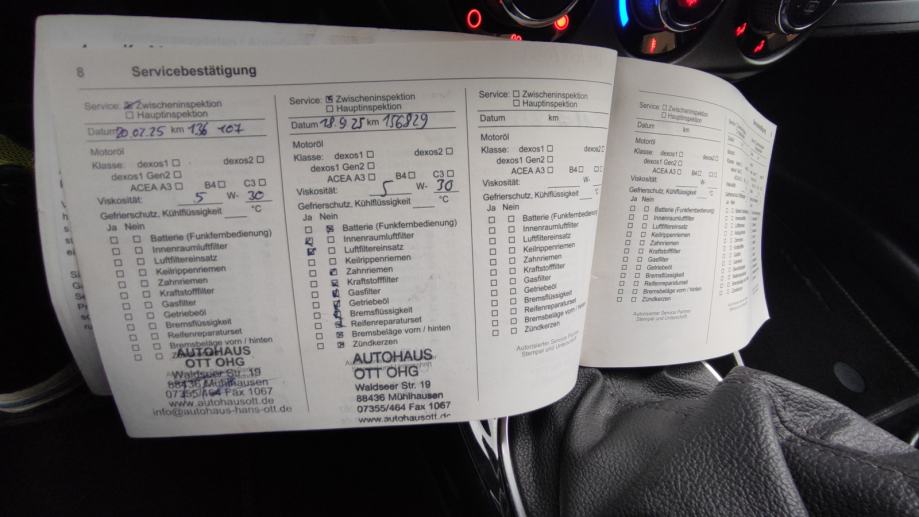 8 Servicebestätigung
Service: ☒ Zwischeninspektion
☐ Hauptinspektion
Datum 20.02.25 km 136 107
Motoröl
Klasse: dexos1 ☐ dexos2 ☐
dexos1 Gen2 ☐
ACEA A3 ☐ B4 ☐ C3 ☐
Viskosität: 5 W- 30
Gefrierschutz, Kühlflüssigkeit °C
Ja Nein
☐ ☐ Batterie (Funkfernbedienung)
☐ ☐ Innenraumluftfilter
☐ ☐ Luftfiltereinsatz
☐ ☐ Keilrippenriemen
☐ ☐ Zahnriemen
☐ ☐ Kraftstofffilter
☐ ☐ Gasfilter
☐ ☐ Getriebeöl
☐ ☐ Bremsflüssigkeit
☐ ☐ Reifenreparaturset
☐ ☐ Bremsbeläge vorn / hinten
AUTOHAUS
OTT OHG
Waldseer Str. 19
88436 Mühlhausen
07355/464 Fax 1067
www.autohausott.de
info@autohaus-hans-ott.de
Service: ☒ Zwischeninspektion
☐ Hauptinspektion
Datum 18.9.25 km 156829
Motoröl
Klasse: dexos1 ☐ dexos2 ☐
dexos1 Gen2 ☐
ACEA A3 ☐ B4 ☐ C3 ☐
Viskosität: 5 W- 30
Gefrierschutz, Kühlflüssigkeit °C
Ja Nein
☐ ☒ Batterie (Funkfernbedienung)
☒ ☐ Innenraumluftfilter
☒ ☐ Luftfiltereinsatz
☐ ☐ Keilrippenriemen
☐ ☒ Zahnriemen
☐ ☒ Kraftstofffilter
☐ ☒ Gasfilter
☐ ☒ Getriebeöl
☐ ☒ Bremsflüssigkeit
☐ ☒ Reifenreparaturset
☐ ☒ Bremsbeläge vorn / hinten
☐ ☒ Zündkerzen
AUTOHAUS
OTT OHG
Waldseer Str. 19
88436 Mühlhausen
07355/464 Fax 1067
www.autohausott.de
Service: ☐ Zwischeninspektion
☐ Hauptinspektion
Datum km
Motoröl
Klasse: dexos1 ☐ dexos2 ☐
dexos1 Gen2 ☐
ACEA A3 ☐ B4 ☐ C3
Viskosität: W-
Gefrierschutz, Kühlflüssigkeit
Ja Nein
☐ ☐ Batterie (Funkfernbedienung)
☐ ☐ Innenraumluftfilter
☐ ☐ Luftfiltereinsatz
☐ ☐ Keilrippenriemen
☐ ☐ Zahnriemen
☐ ☐ Kraftstofffilter
☐ ☐ Gasfilter
☐ ☐ Getriebeöl
☐ ☐ Bremsflüssigkeit
☐ ☐ Reifenreparaturset
☐ ☐ Bremsbeläge vorn / hinten
☐ ☐ Zündkerzen
Autorisierter Service Partner
Stempel und Unterschrift
Service: ☐ Zwischeninspektion
☐ Hauptinspektion
Datum km
Motoröl
Klasse: dexos1 ☐ dexos2 ☐
dexos1 Gen2 ☐
ACEA A3 ☐ B4 ☐ C3 ☐
Viskosität: W-
Gefrierschutz, Kühlflüssigkeit °C
Ja Nein
☐ ☐ Batterie (Funkfernbedienung)
☐ ☐ Innenraumluftfilter
☐ ☐ Luftfiltereinsatz
☐ ☐ Keilrippenriemen
☐ ☐ Zahnriemen
☐ ☐ Kraftstofffilter
☐ ☐ Gasfilter
☐ ☐ Getriebeöl
☐ ☐ Bremsflüssigkeit
☐ ☐ Reifenreparaturset
☐ ☐ Bremsbeläge vorn / hinten
☐ ☐ Zündkerzen
Autorisierter Service Partner
Stempel und Unterschrift